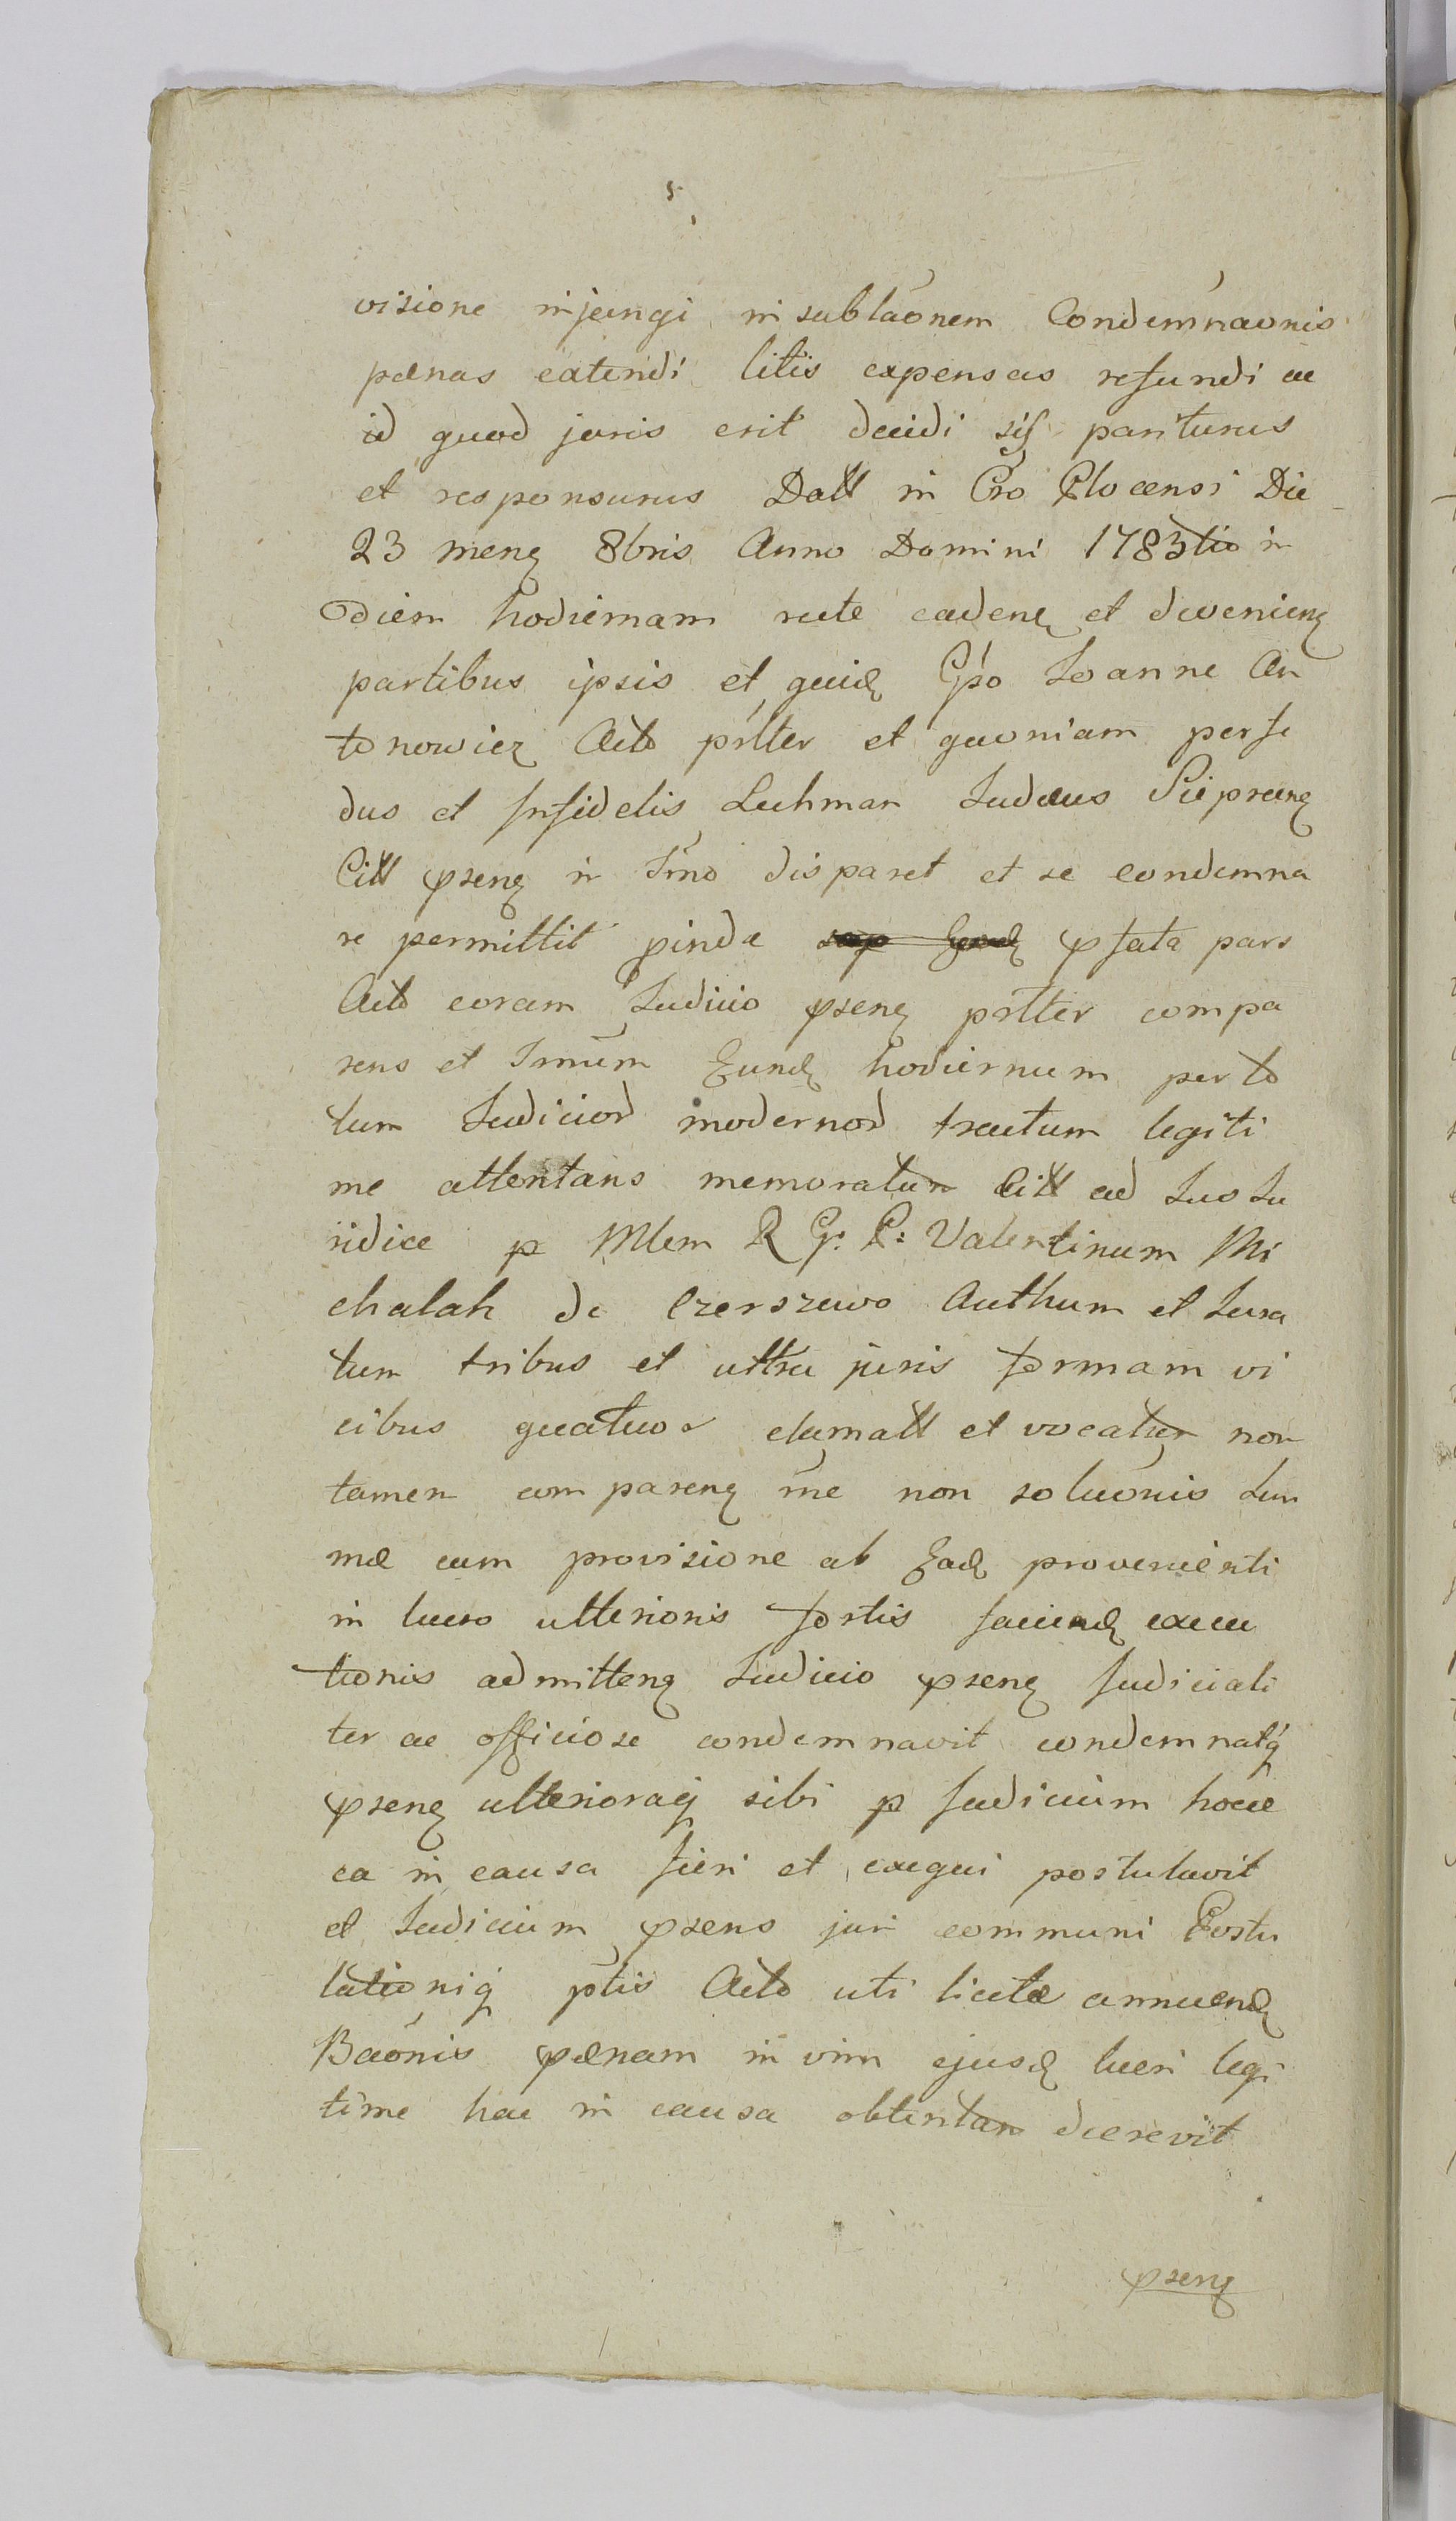 visione injungi in sublãonem Condemnãonis
pænas extendi litis expensas refundi ac
id quod juris erit decidi sis pariturus
et responsurus Datt in Cro Plocensi Die
23 mensę 8bris Anno Domini 1783tio in
diem hodiernam recte cadenę et devenienę
partibus ipsis et quidę Gnso Joanne An
tonowicz Acto psltter et quoniam perfi
dus et Infidelis Luhman Judæus Sieprcenę
Citt psenę in Tmo disparet et se condemna
re permittit pinde pfata pars
Acto coram Judicio psenę psltter compa
rens et Tmum Eundę hodiernum per to
tum Judicior modernor tractum legiti
me attentans memoratum Citt ad Jus Ju
ridice p Mlem R G. P: Valentinum Mi
chalak de Czerszewo Authum et Jura
tum tribus et ultra juris formam vi
cibus quatuor clamatt et vocatum non
tamen comparenę rne non soluõnis Sum
mæ cum provisione ab Eadę provenienti
in lucro ulterioris fortis faciendę execu
tionis admittenę Judicio psenę Judiciali
ter ac officiose condemnavit condemnatq
psenę ulterioraq sibi p Judicium hocce
ea in causa fieri et exequi postulavit
et Judicium psens juri communi Postu
lationiq ptis Acto uti licitæ annuendę
Bãonis pænam in vim ejusdę lucri legi
time hac in causa obtentam decrevit
psenę